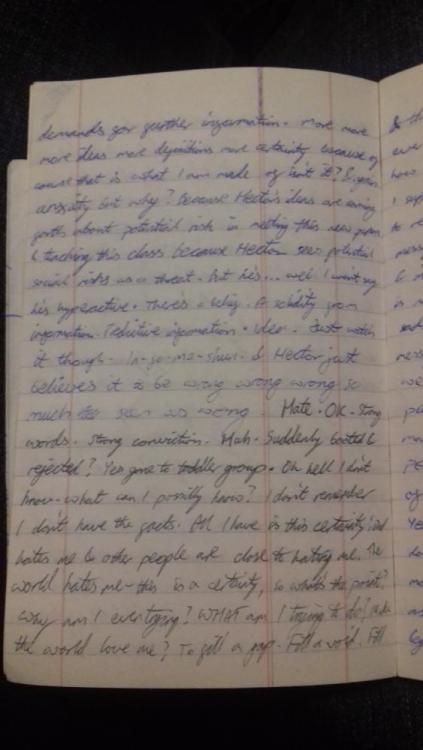 demands for further information. More more
more ideas more definitions more certainty because of
course that is what I am made of isn't it?
anxiety but why? Because Hector's ideas are coming
forth about potential risk in meeting this new person
& teaching this class because Hector sees potential
social risks as a threat. But he's... well I won't say
he's hyperactive. There's a A solidity from
information. Definitive information. Idea. Just watch
it though. In-fo-ma-shun. & Hector just
believes it to be wrong wrong wrong so
much seen as wrong. Hate. OK. Strong
words. Strong conviction. Mah. Suddenly booted &
rejected? Yes gone to toddler group. Oh hell I don't
know - what can I possibly know? I don't remember
I don't have the facts. All I have is this certainty:
hates me & other people are close to hating me. The
world hates me - this is a certainty, so what's the point?
Why am I even trying? WHAT am I trying to do? Make
the world love me? To fill a gap. Fill a void. Fill